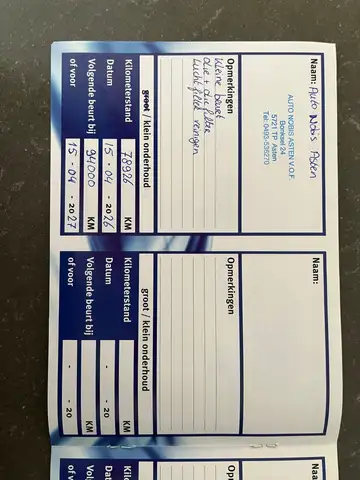 Naam: Auto Nobis Asten
AUTO NOBIS ASTEN V.O.F.
Bonksel 24
5721 TP Asten
Tel. 0493-536270
Opmerkingen
Kleine beurt
olie + olie filter
Luchtfilter reinigen
groot / klein onderhoud
Kilometerstand 78926 KM
Datum 15 - 04 - 2026
Volgende beurt bij 94000 KM
of voor 15 - 04 - 2027
Naam:
Opmerkingen
groot / klein onderhoud
Kilometerstand KM
Datum - - 20
Volgende beurt bij KM
of voor - - 20
Naam:
Opmerkingen
groot
Kilometerstand
Datum
Volgende
of voor